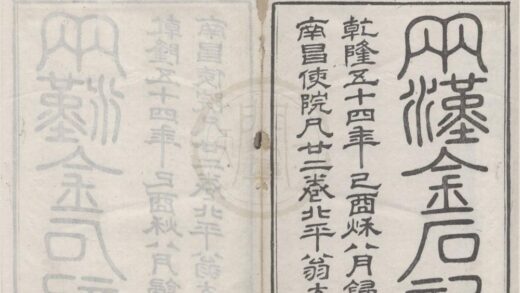 兩漢金石記
乾隆五十四年己酉秌八月歸
南昌使院凡廿二卷北平翁方